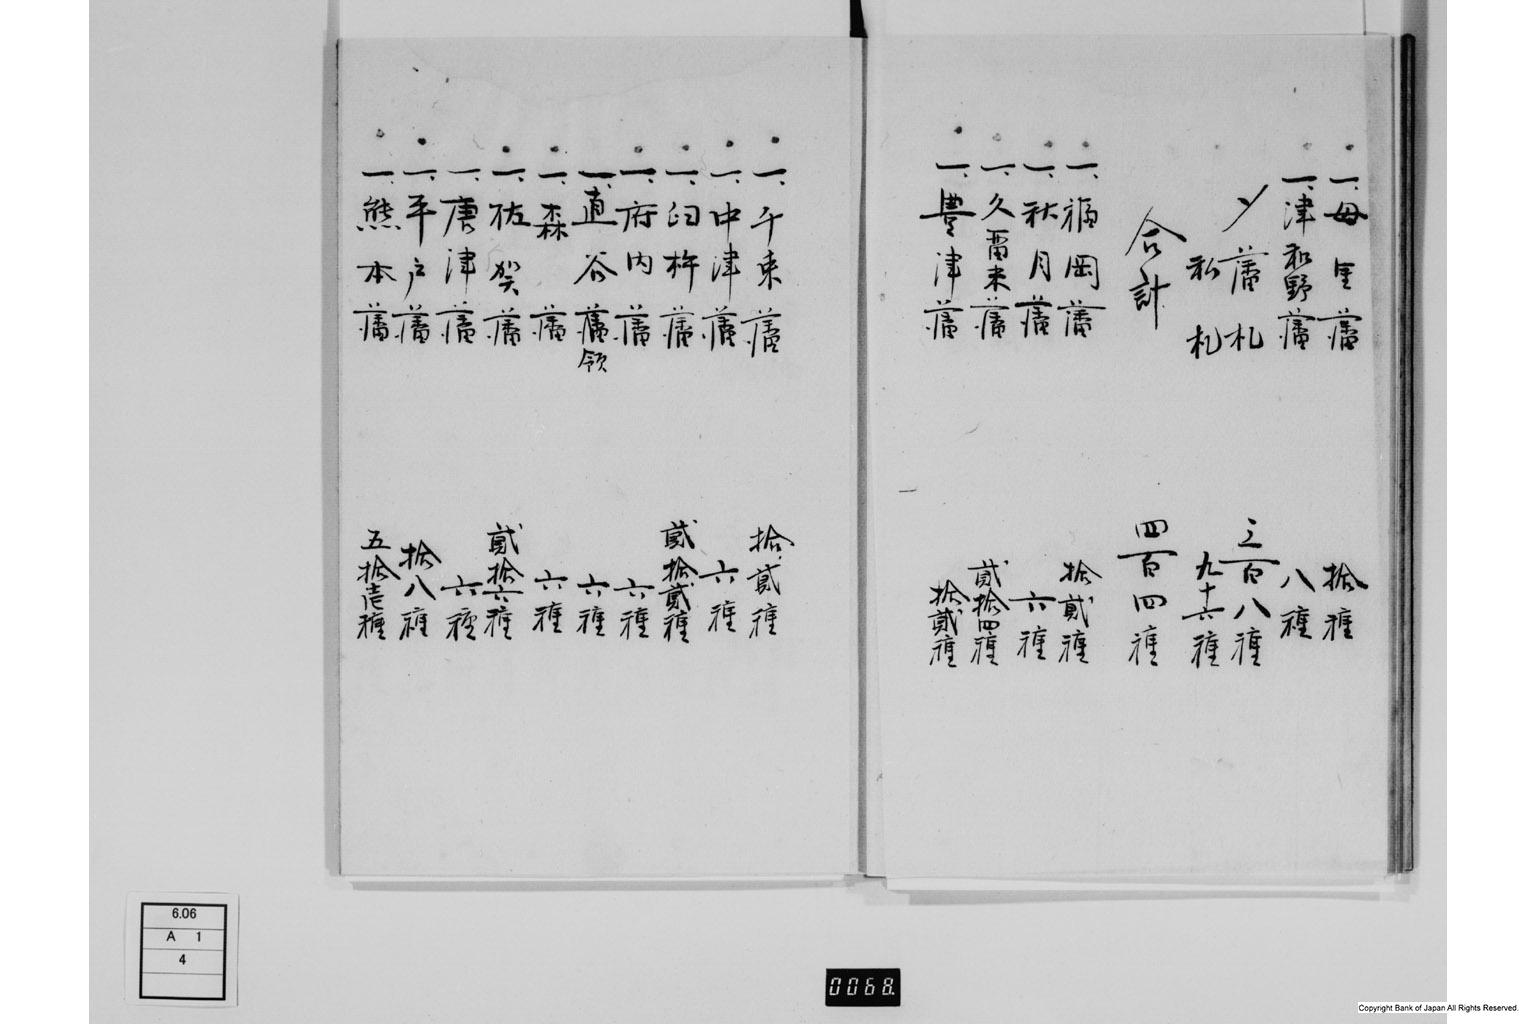 一、母里藩 拾種
一、津和野藩 八種
〆藩札 三百八種
私札 九十六種
合計 四百四種
一、福岡藩 拾貳種
一、秋月藩 六種
一、久留米藩 貳拾四種
一、豊津藩 拾貳種
一、千束藩 拾貳種
一、中津藩 六種
一、臼杵藩 貳拾貳種
一、府内藩 六種
一、直谷藩領 六種
一、森藩 六種
一、佐賀藩 貳拾六種
一、唐津藩 六種
一、平戸藩 拾八種
一、熊本藩 五拾壱種
6.06
A 1
4
0068.
Copyright Bank of Japan All Rights Reserved.